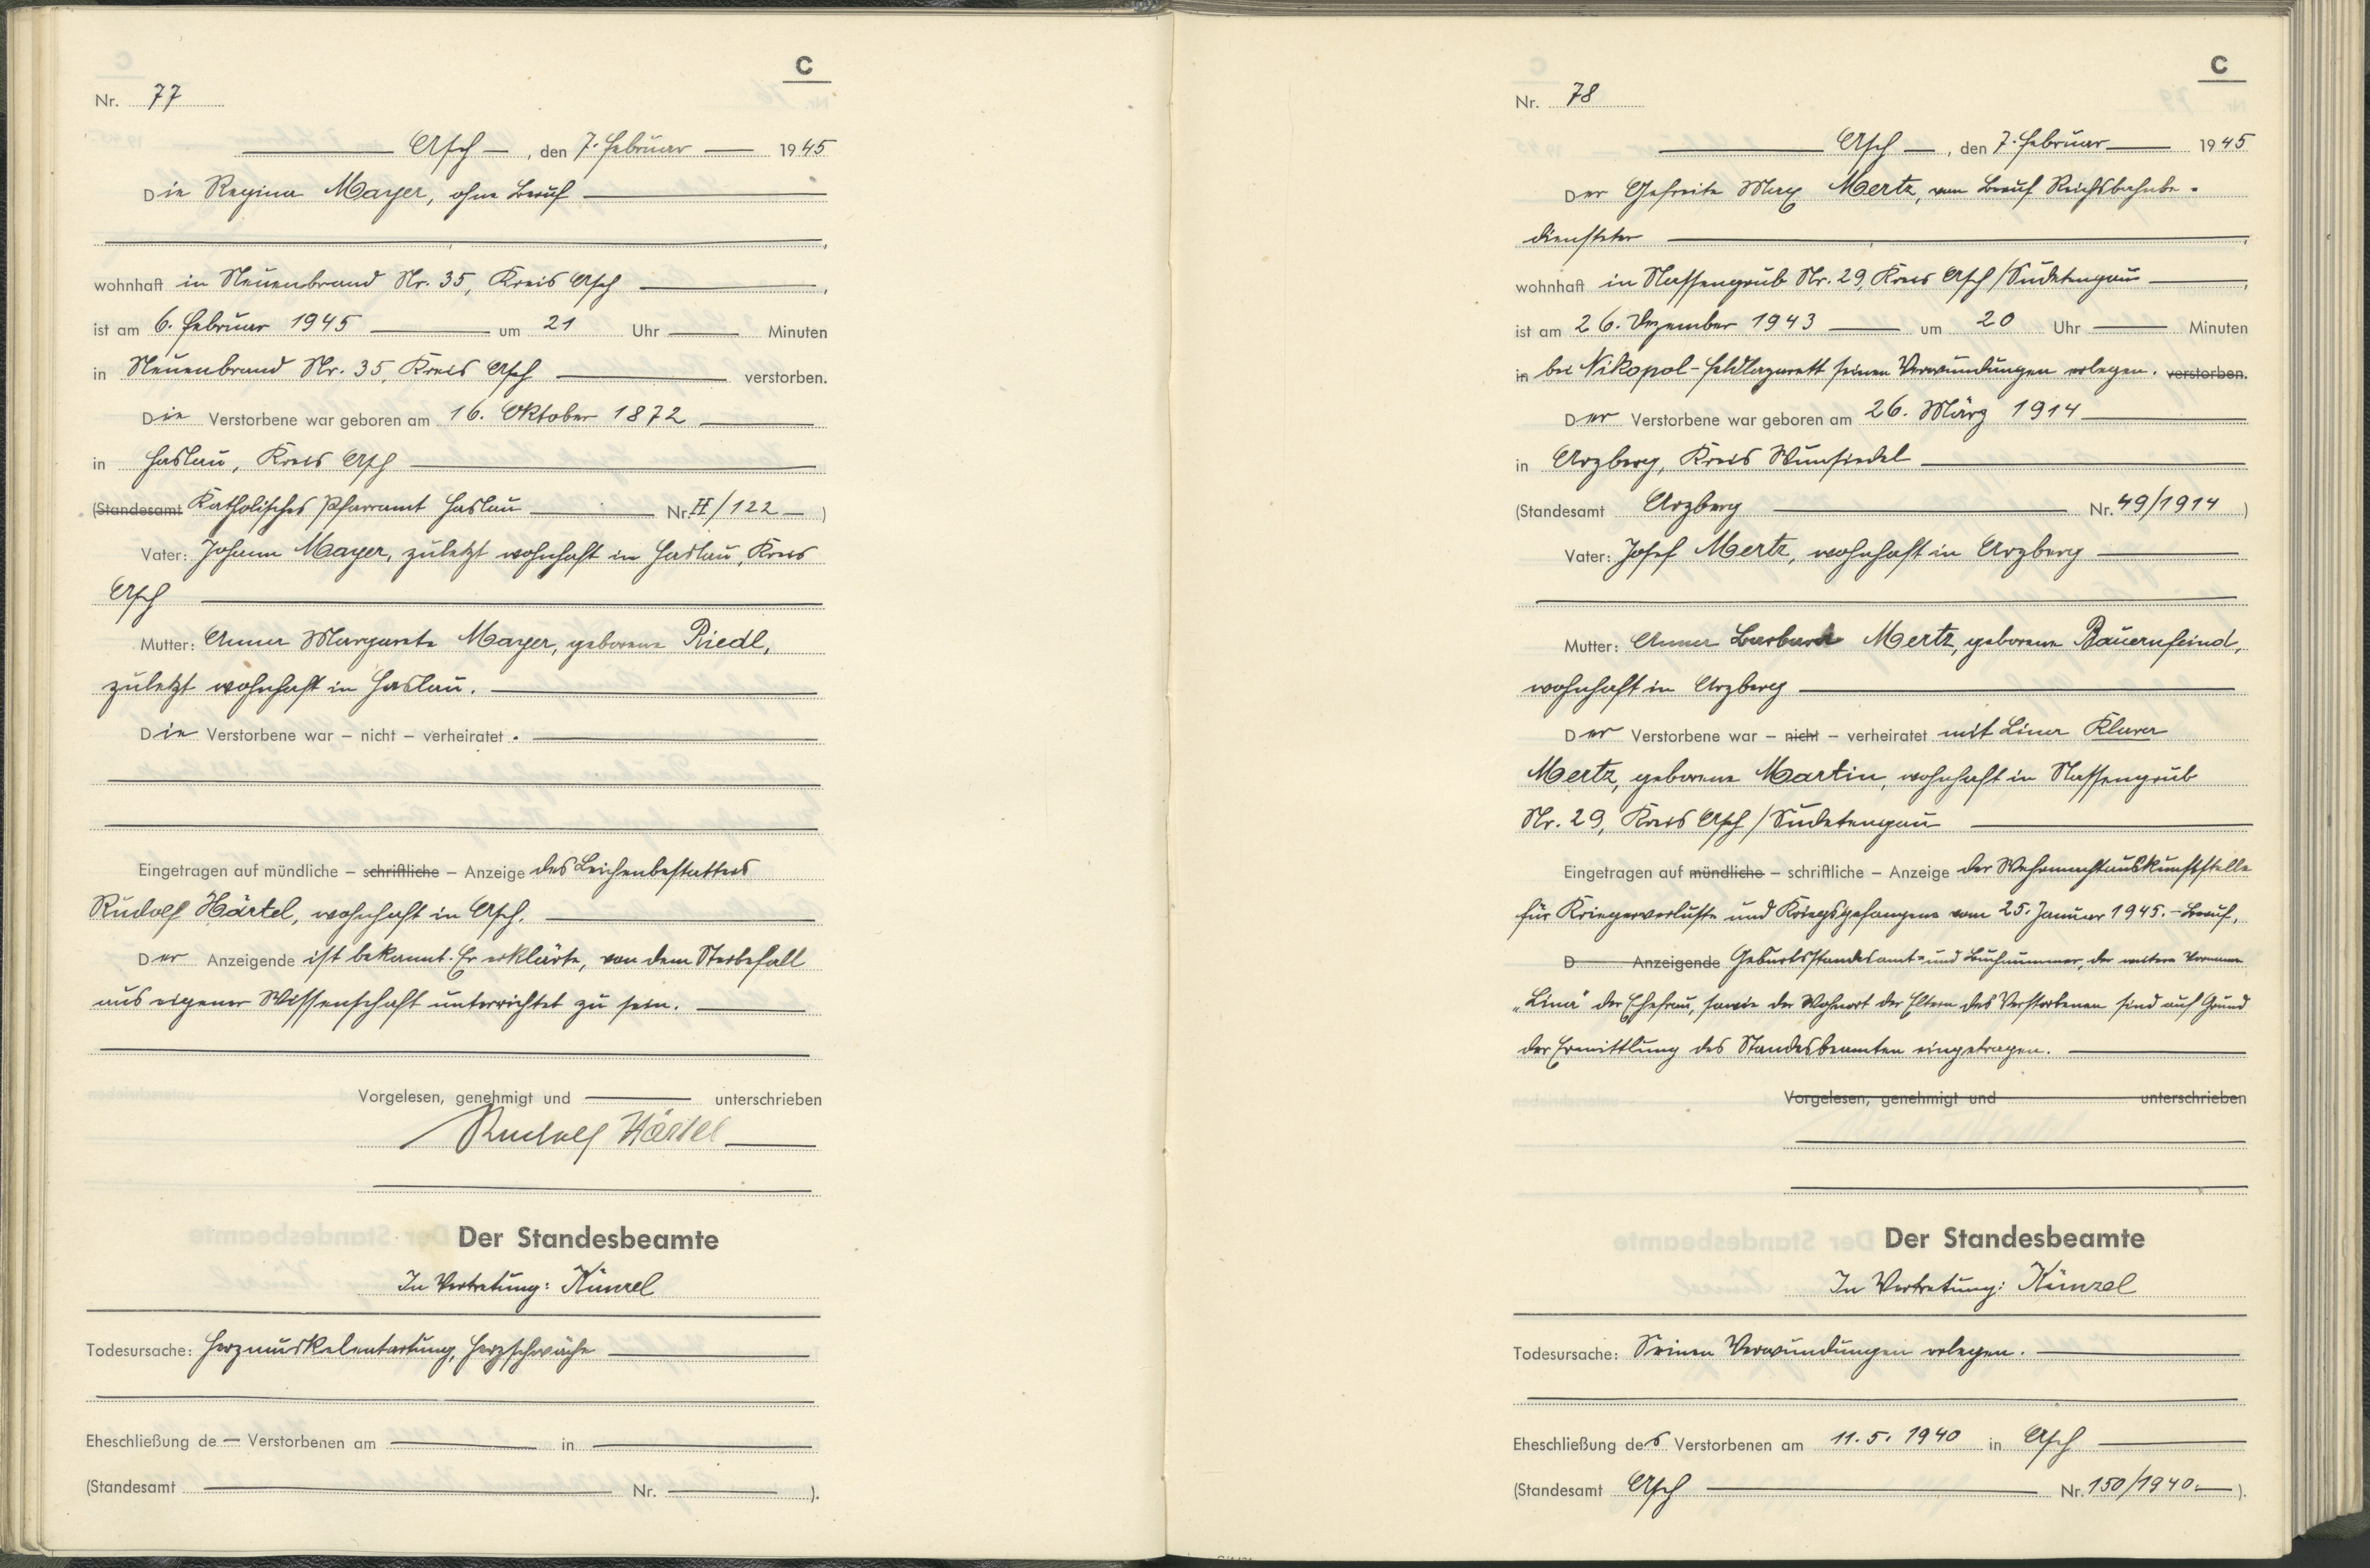 C
Nr. 77
Asch, den 7. Februar 1945
Die Regina Mayer, ohne Beruf
wohnhaft in Neuenbrand Nr. 35, Kreis Asch
ist am 6. Februar 1945 um 21 Uhr Minuten
in Neuenbrand Nr. 35, Kreis Asch verstorben.
Die Verstorbene war geboren am 16. Oktober 1872
in Haslau, Kreis Asch
(Standesamt Katholisches Pfarramt Haslau Nr. II/122 )
Vater: Johann Mayer, zuletzt wohnhaft in Haslau, Kreis
Asch
Mutter: Anna Margareta Mayer, geborene Riedl,
zuletzt wohnhaft in Haslau.
Die Verstorbene war – nicht – verheiratet.
Eingetragen auf mündliche – schriftliche – Anzeige des Leichenbestatters
Rudolf Härtel, wohnhaft in Asch.
Der Anzeigende ist bekannt. Er erklärte, von dem Sterbefall
aus eigener Wissenschaft unterrichtet zu sein.
Vorgelesen, genehmigt und unterschrieben
Rudolf Härtel
Der Standesbeamte
In Vertretung: Künzel
Todesursache: Herzmuskelentartung, Herzschwäche
Eheschließung de Verstorbenen am in
(Standesamt Nr. ).
C
Nr. 78
Asch, den 7. Februar 1945
Der Gefreite Max Mertz, von Beruf Reichsbahnbe-
diensteter
wohnhaft in Nassengrub Nr. 29, Kreis Asch/Sudetengau
ist am 26. Dezember 1943 um 20 Uhr Minuten
in bei Nikopol-Feldlazarett seinen Verwundungen erlegen. verstorben.
Der Verstorbene war geboren am 26. März 1914
in Arzberg, Kreis Wunsiedel
(Standesamt Arzberg Nr. 49/1914 )
Vater: Josef Mertz, wohnhaft in Arzberg
Mutter: Anna Barbara Mertz, geborene Bauernfeind,
wohnhaft in Arzberg
Der Verstorbene war – nicht – verheiratet mit Lina Klara
Mertz, geborene Martin, wohnhaft in Nassengrub
Nr. 29, Kreis Asch/Sudetengau
Eingetragen auf mündliche – schriftliche – Anzeige der Wehrmachtauskunftstelle
für Kriegerverluste und Kriegsgefangene vom 25. Januar 1945. - Beruf,
D Anzeigende Geburtsstandesamt- und Buchnummer, der weitere Vorname
„Lina" der Ehefrau, sowie der Wohnort der Eltern des Verstorbenen sind auf Grund
der Ermittlung des Standesbeamten eingetragen.
Vorgelesen, genehmigt und unterschrieben
Der Standesbeamte
In Vertretung: Künzel
Todesursache: Seinen Verwundungen erlegen.
Eheschließung des Verstorbenen am 11.5.1940 in Asch
(Standesamt Asch Nr. 150/1940. ).